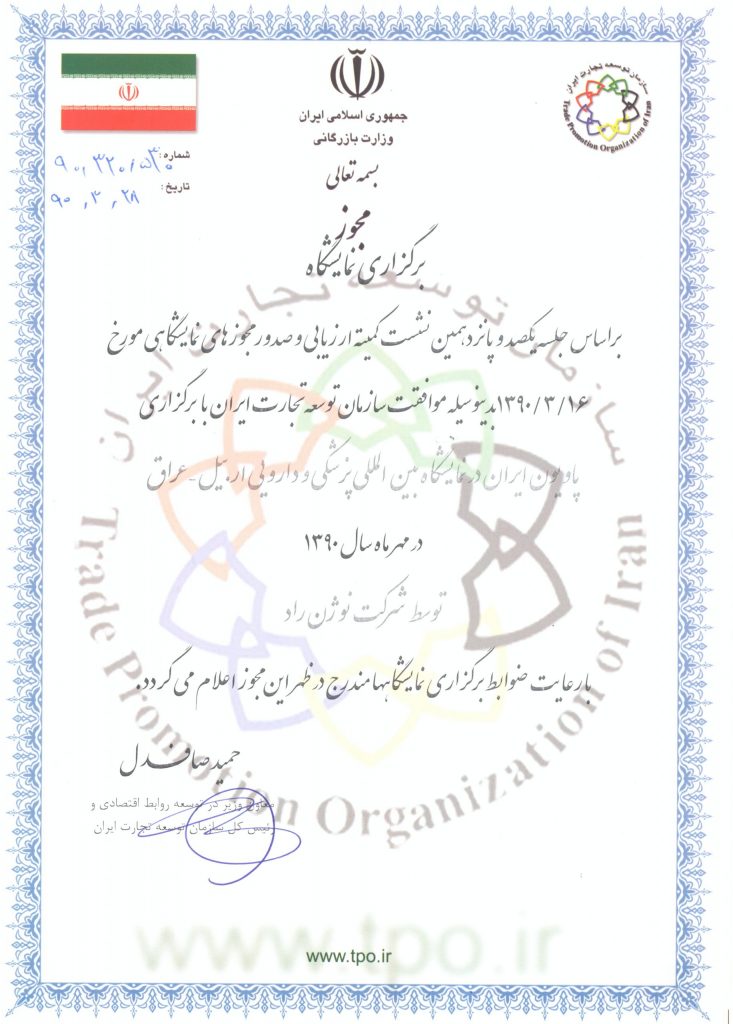 جمهوری اسلامی ایران
وزارت بازرگانی
سازمان توسعه تجارت ایران
Trade Promotion Organization of Iran
شماره:
تاریخ: ۹۰,۳,۲۸
بسمه تعالی
مجوز
برگزاری نمایشگاه
براساس جلسه یکصد و پانزدهمین نشست کمیته ارزیابی و صدور مجوزهای نمایشگاهی مورخ
۱۳۹۰/۳/۱۶ بدینوسیله موافقت سازمان توسعه تجارت ایران با برگزاری
پاویون ایران در نمایشگاه بین المللی پزشکی و دارویی اربیل - عراق
در مهر ماه سال ۱۳۹۰
توسط شرکت نوژن راد
با رعایت ضوابط برگزاری نمایشگاهها مندرج در ظهر این مجوز اعلام می گردد.
حمید صافدل
معاون وزیر در توسعه روابط اقتصادی و
رئیس کل سازمان توسعه تجارت ایران
سازمان توسعه تجارت ایران
Trade Promotion Organization of Iran
www.tpo.ir
www.tpo.ir